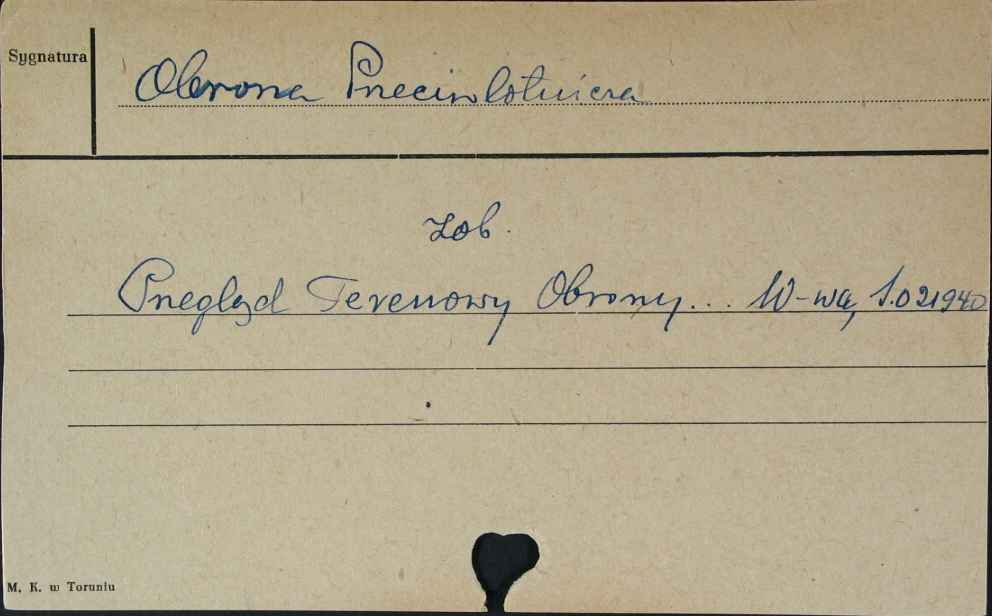 Sygnatura
Obrona Przeciwlotnicza
zob.
Przegląd Terenowy Obrony... W-wa, S.021940
M. K. w Toruniu